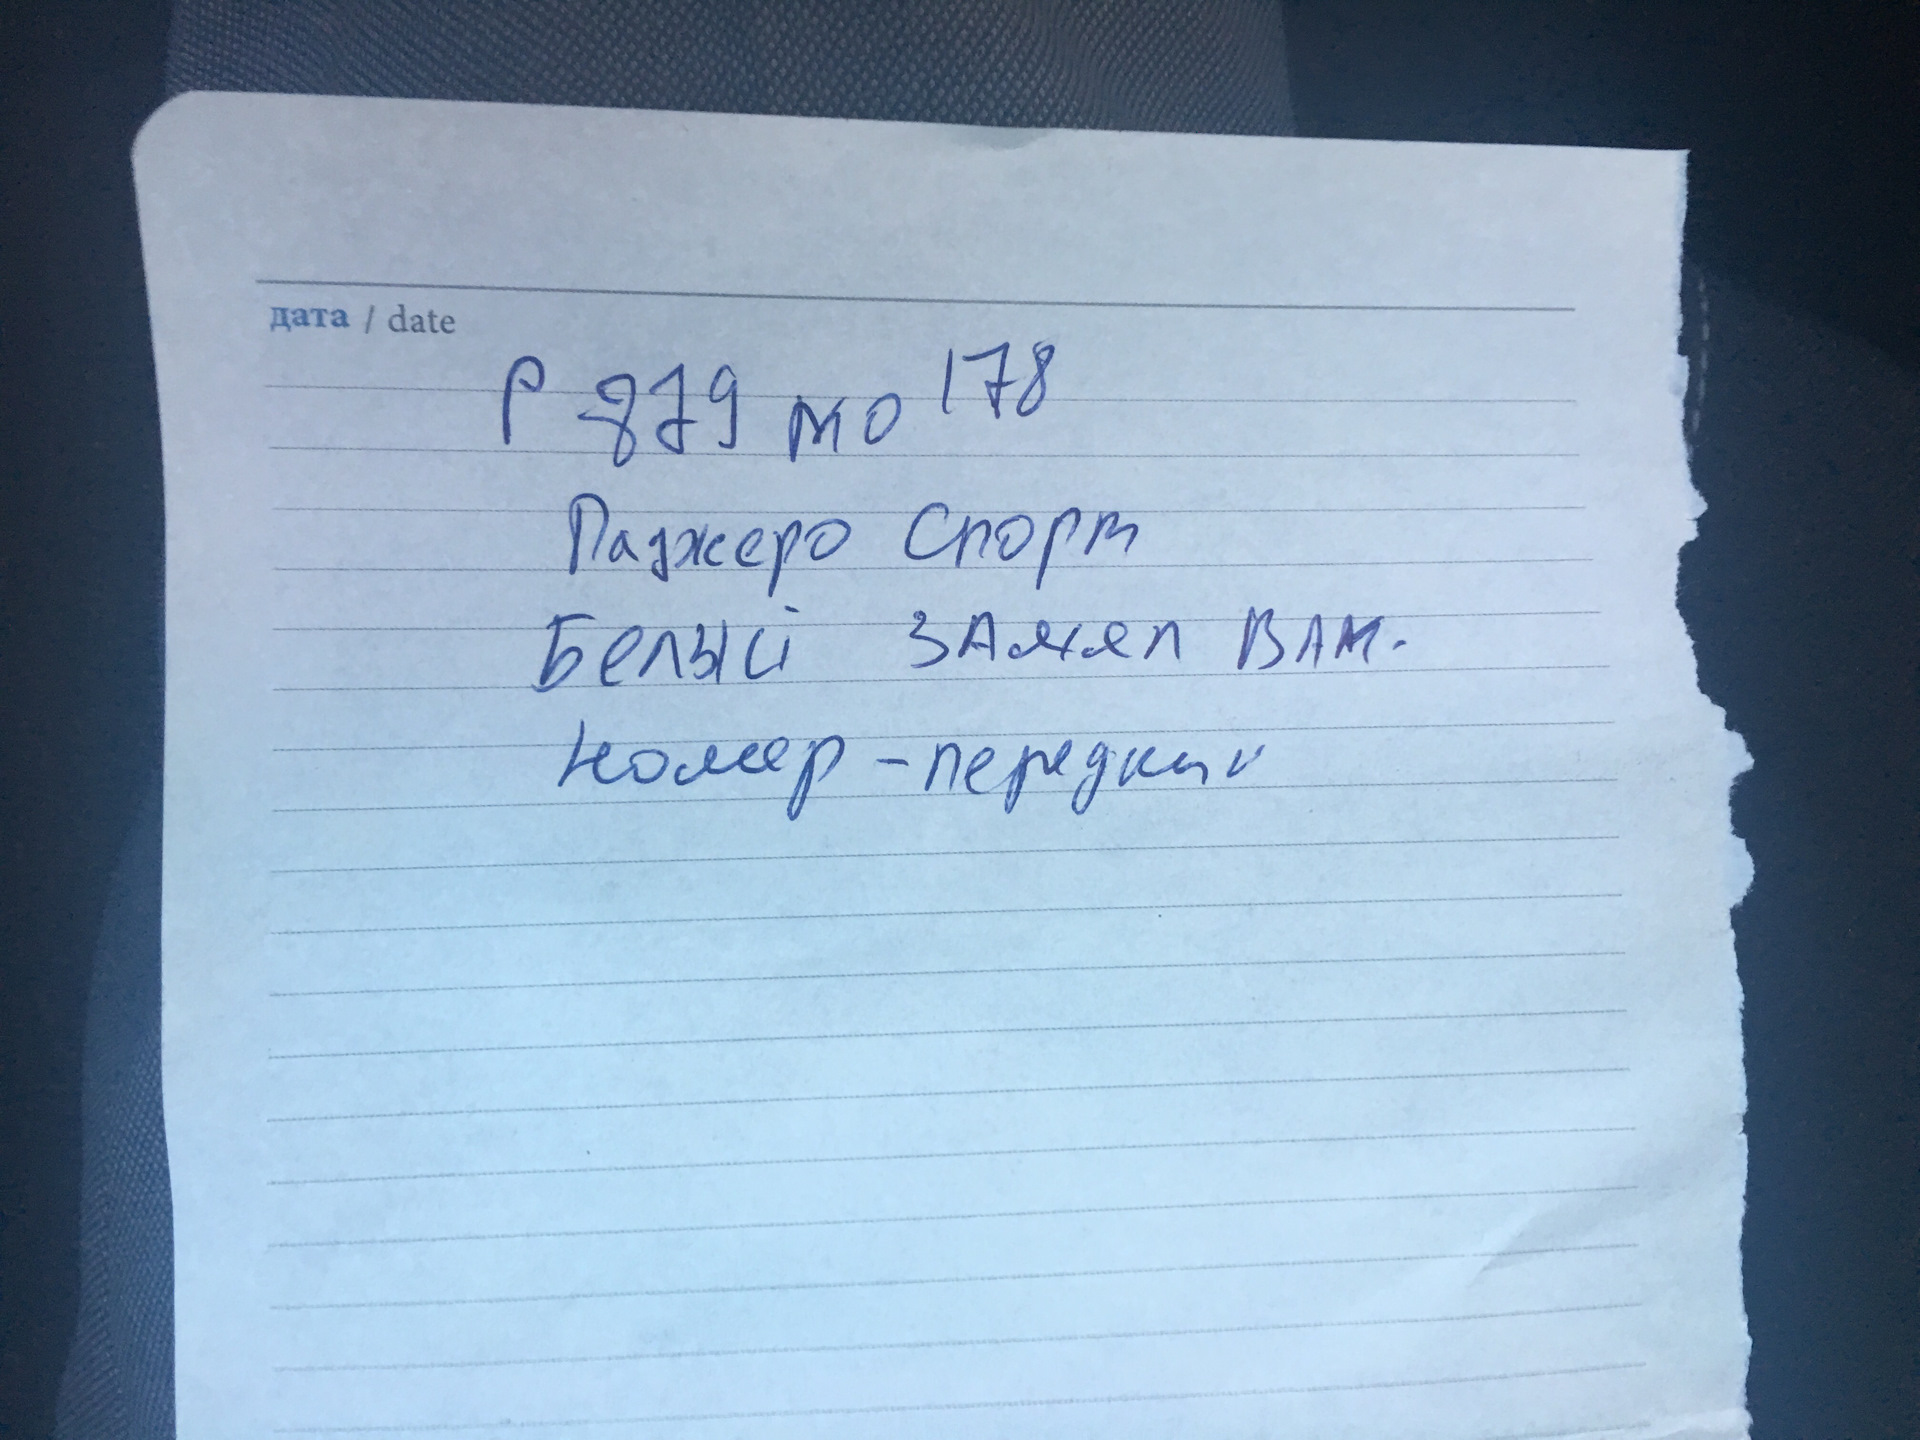 дата / date
Р 879 мо 178
Паджеро Спорт
Белый ЗАмял ВАМ.
Номер - передний